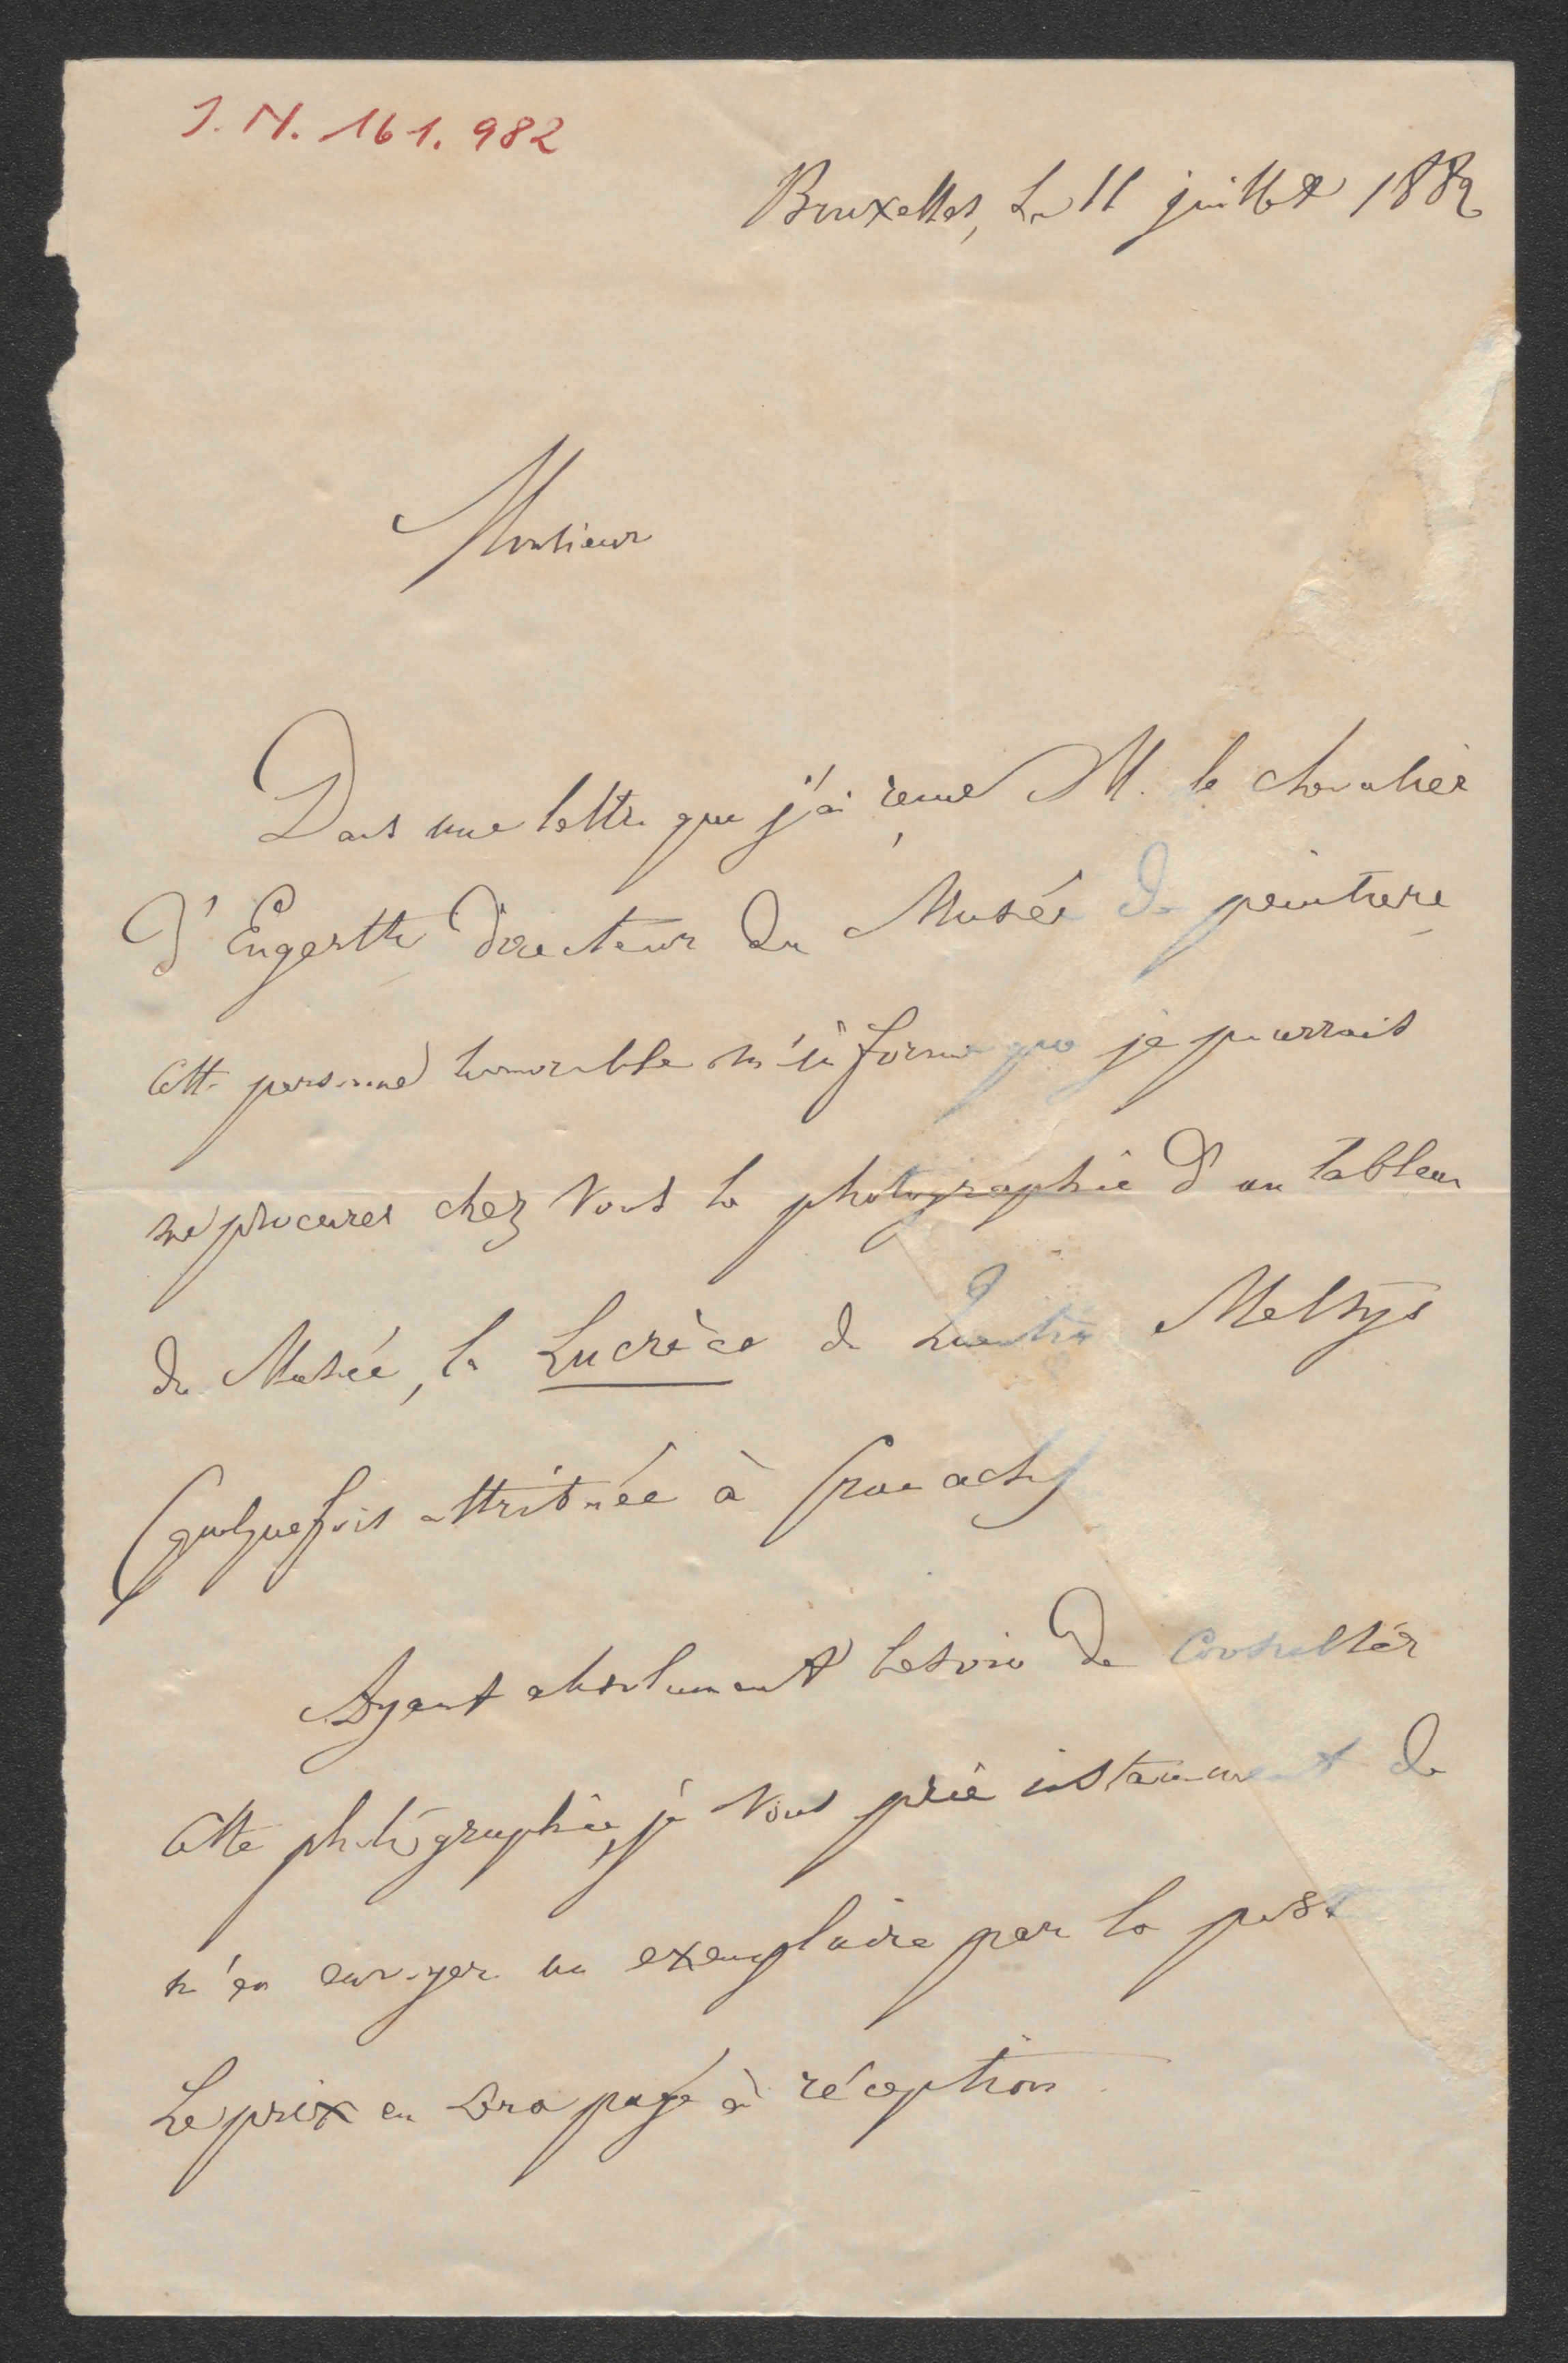 I. N. 161.982
Bruxelles, Le 11 juillet 1882
Monsieur
Dans une lettre que j'ai reçue M. le chevalier
d'Engerth directeur du Musée de peinture
cette personne honorable m'informe que je pourrais
me procurer chez vous la photographie d'un tableau
du Musée, la Lucrèce de Quentin Metsys
(quelquefois attribuée à Cranach)
Ayant absolument besoin de consulter
cette photographie, je vous prie instamment de
m'en envoyer un exemplaire par la poste
Le prix en sera payé à réception.